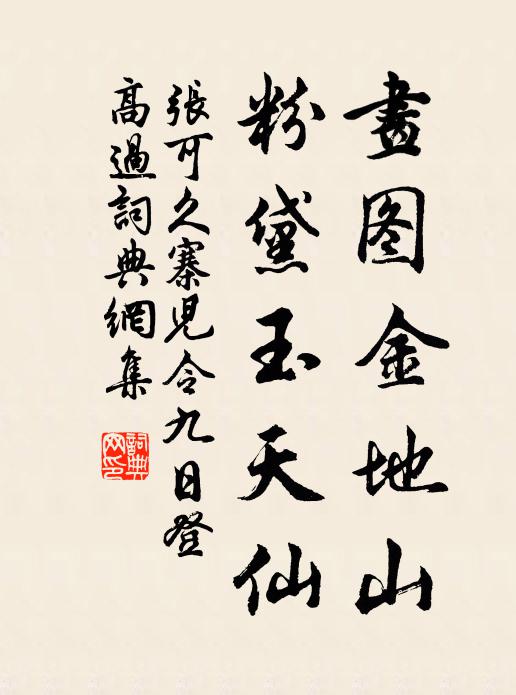 畫图金地山
粉黛玉天仙
張可久寨児令九日登
高過詞典網集
詞典
网印